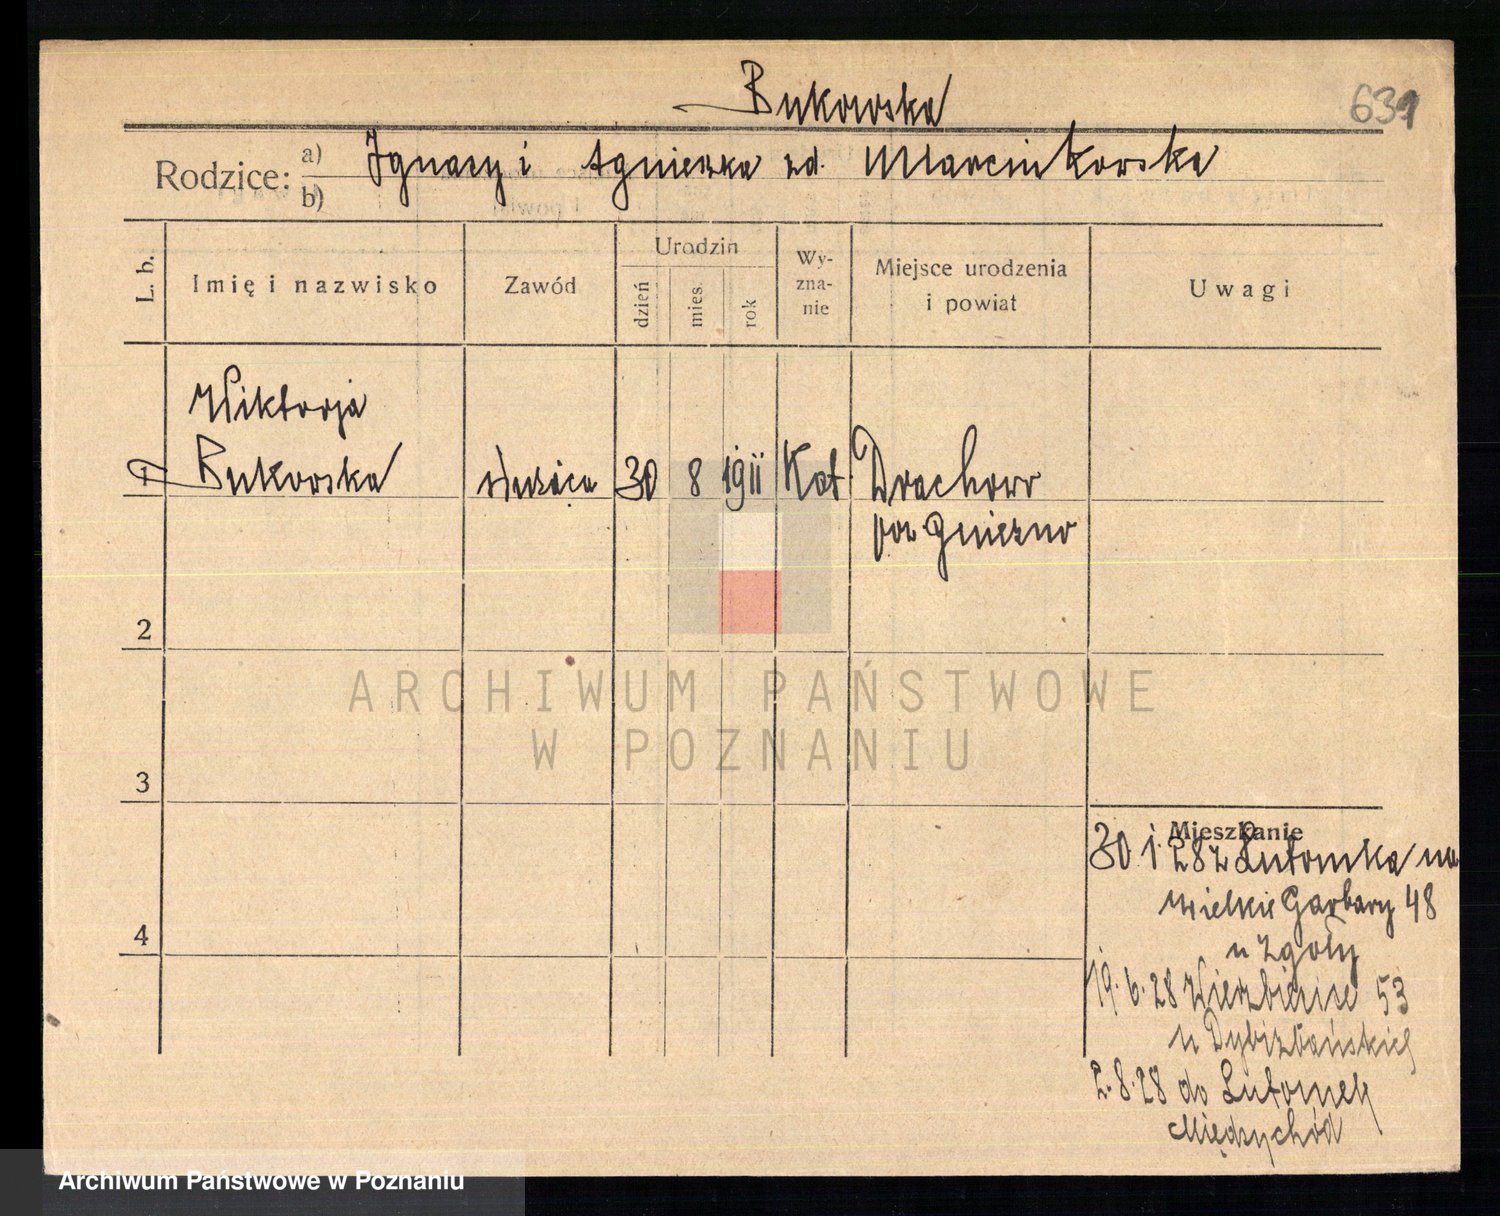 Bukowska
631
Rodzice: a) b) Ignacy i Agnieszka zd. Marcinkowska
L. b.
Imię i nazwisko
Zawód
Urodzin
dzień
mies.
rok
Wy-
zna-
nie
Miejsce urodzenia
i powiat
Uwagi
Wiktorja
1 Bukowska służąca 30 8 1911 Kat. Drachowo
pow Gniezno
2
3
4
Mieszkanie
30 1. 28 z Lutomka na
Wielkie Garbary 48
u Zgoły
19.6.28 Wierzbięcice 53
u Dybizbańskich
2.8.28 do Lutomek
Międzychód
ARCHIWUM PAŃSTWOWE
W POZNANIU
Archiwum Państwowe w Poznaniu